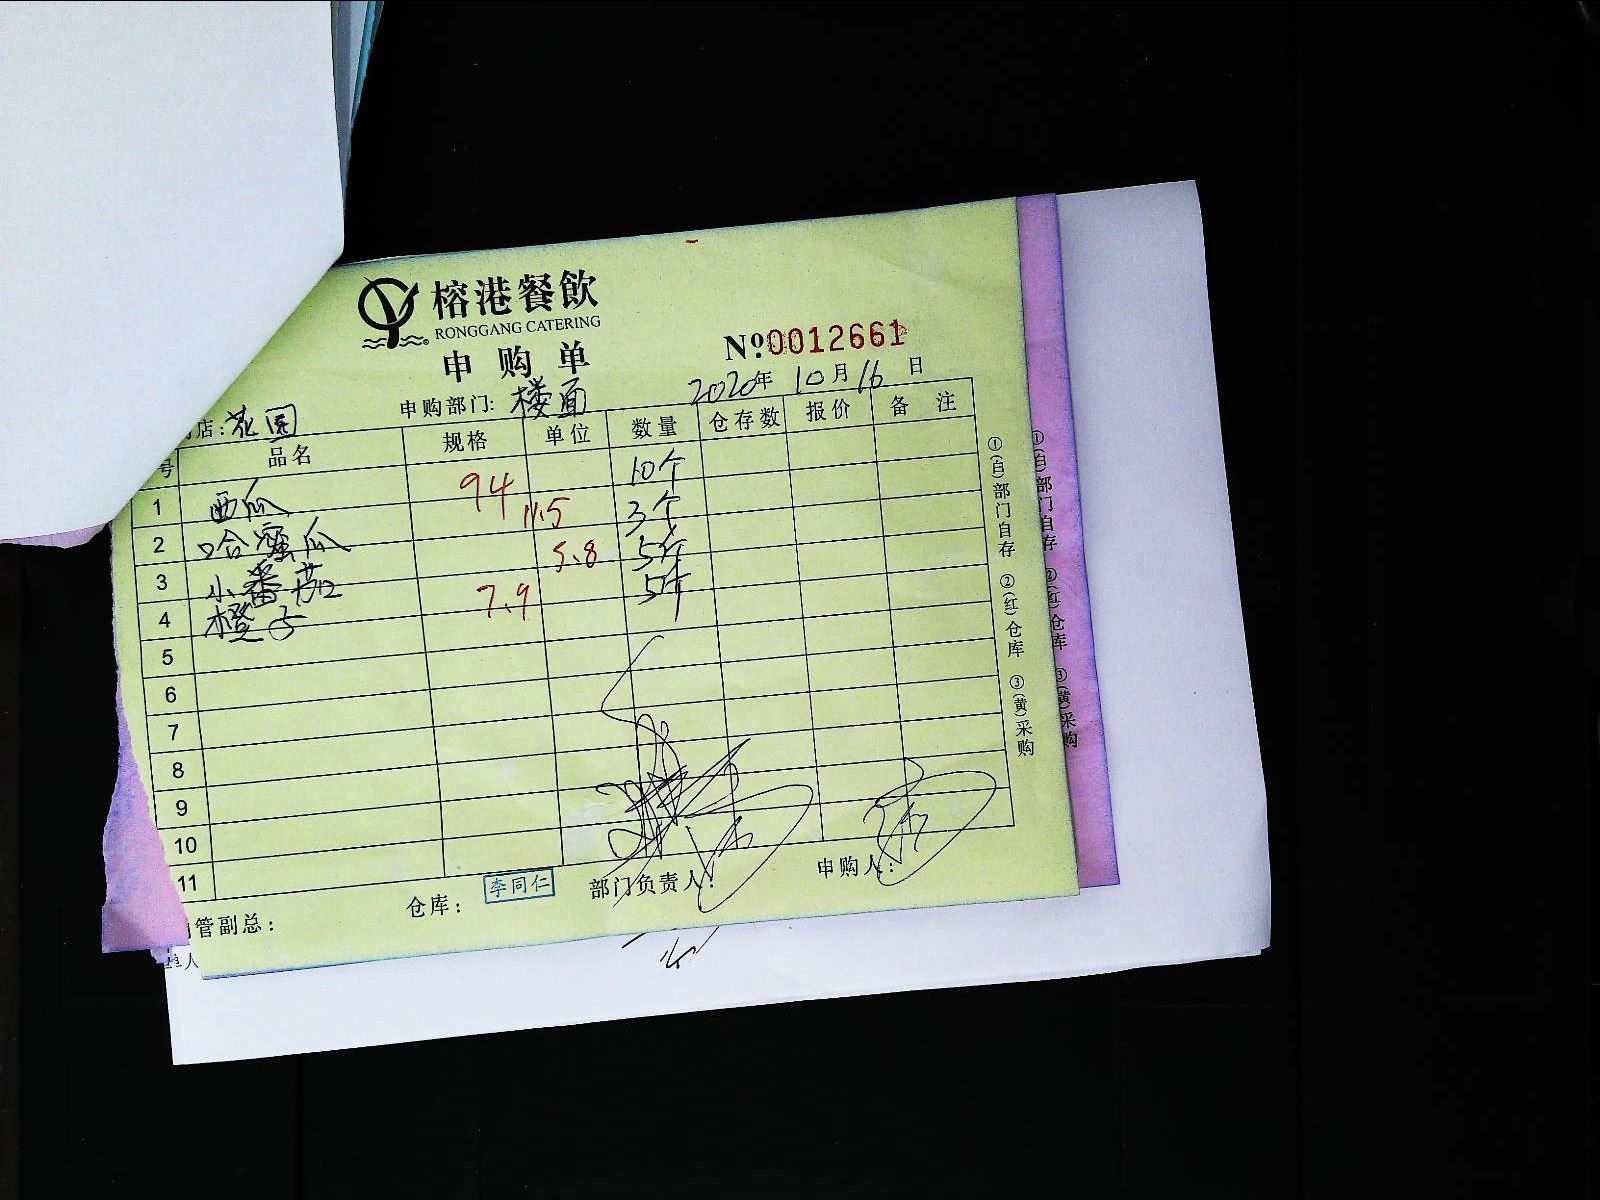 榕港餐飲
RONGGANG CATERING
申购单
Nº0012661
店:花园 申购部门:楼面 2020年10月16日
号 品名 规格 单位 数量 仓存数 报价 备注
1 西瓜 94 10个
2 哈密瓜 11.5 3个
3 小番茄 5.8 5斤
4 橙子 7.9 5斤
5
6
7
8
9
10
11
管副总: 仓库: 李同仁 部门负责人: 申购人:
①(白)部门自存 ②(红)仓库 ③(黄)采购
①(白)部门自存 ②(红)仓库 ③(黄)采购